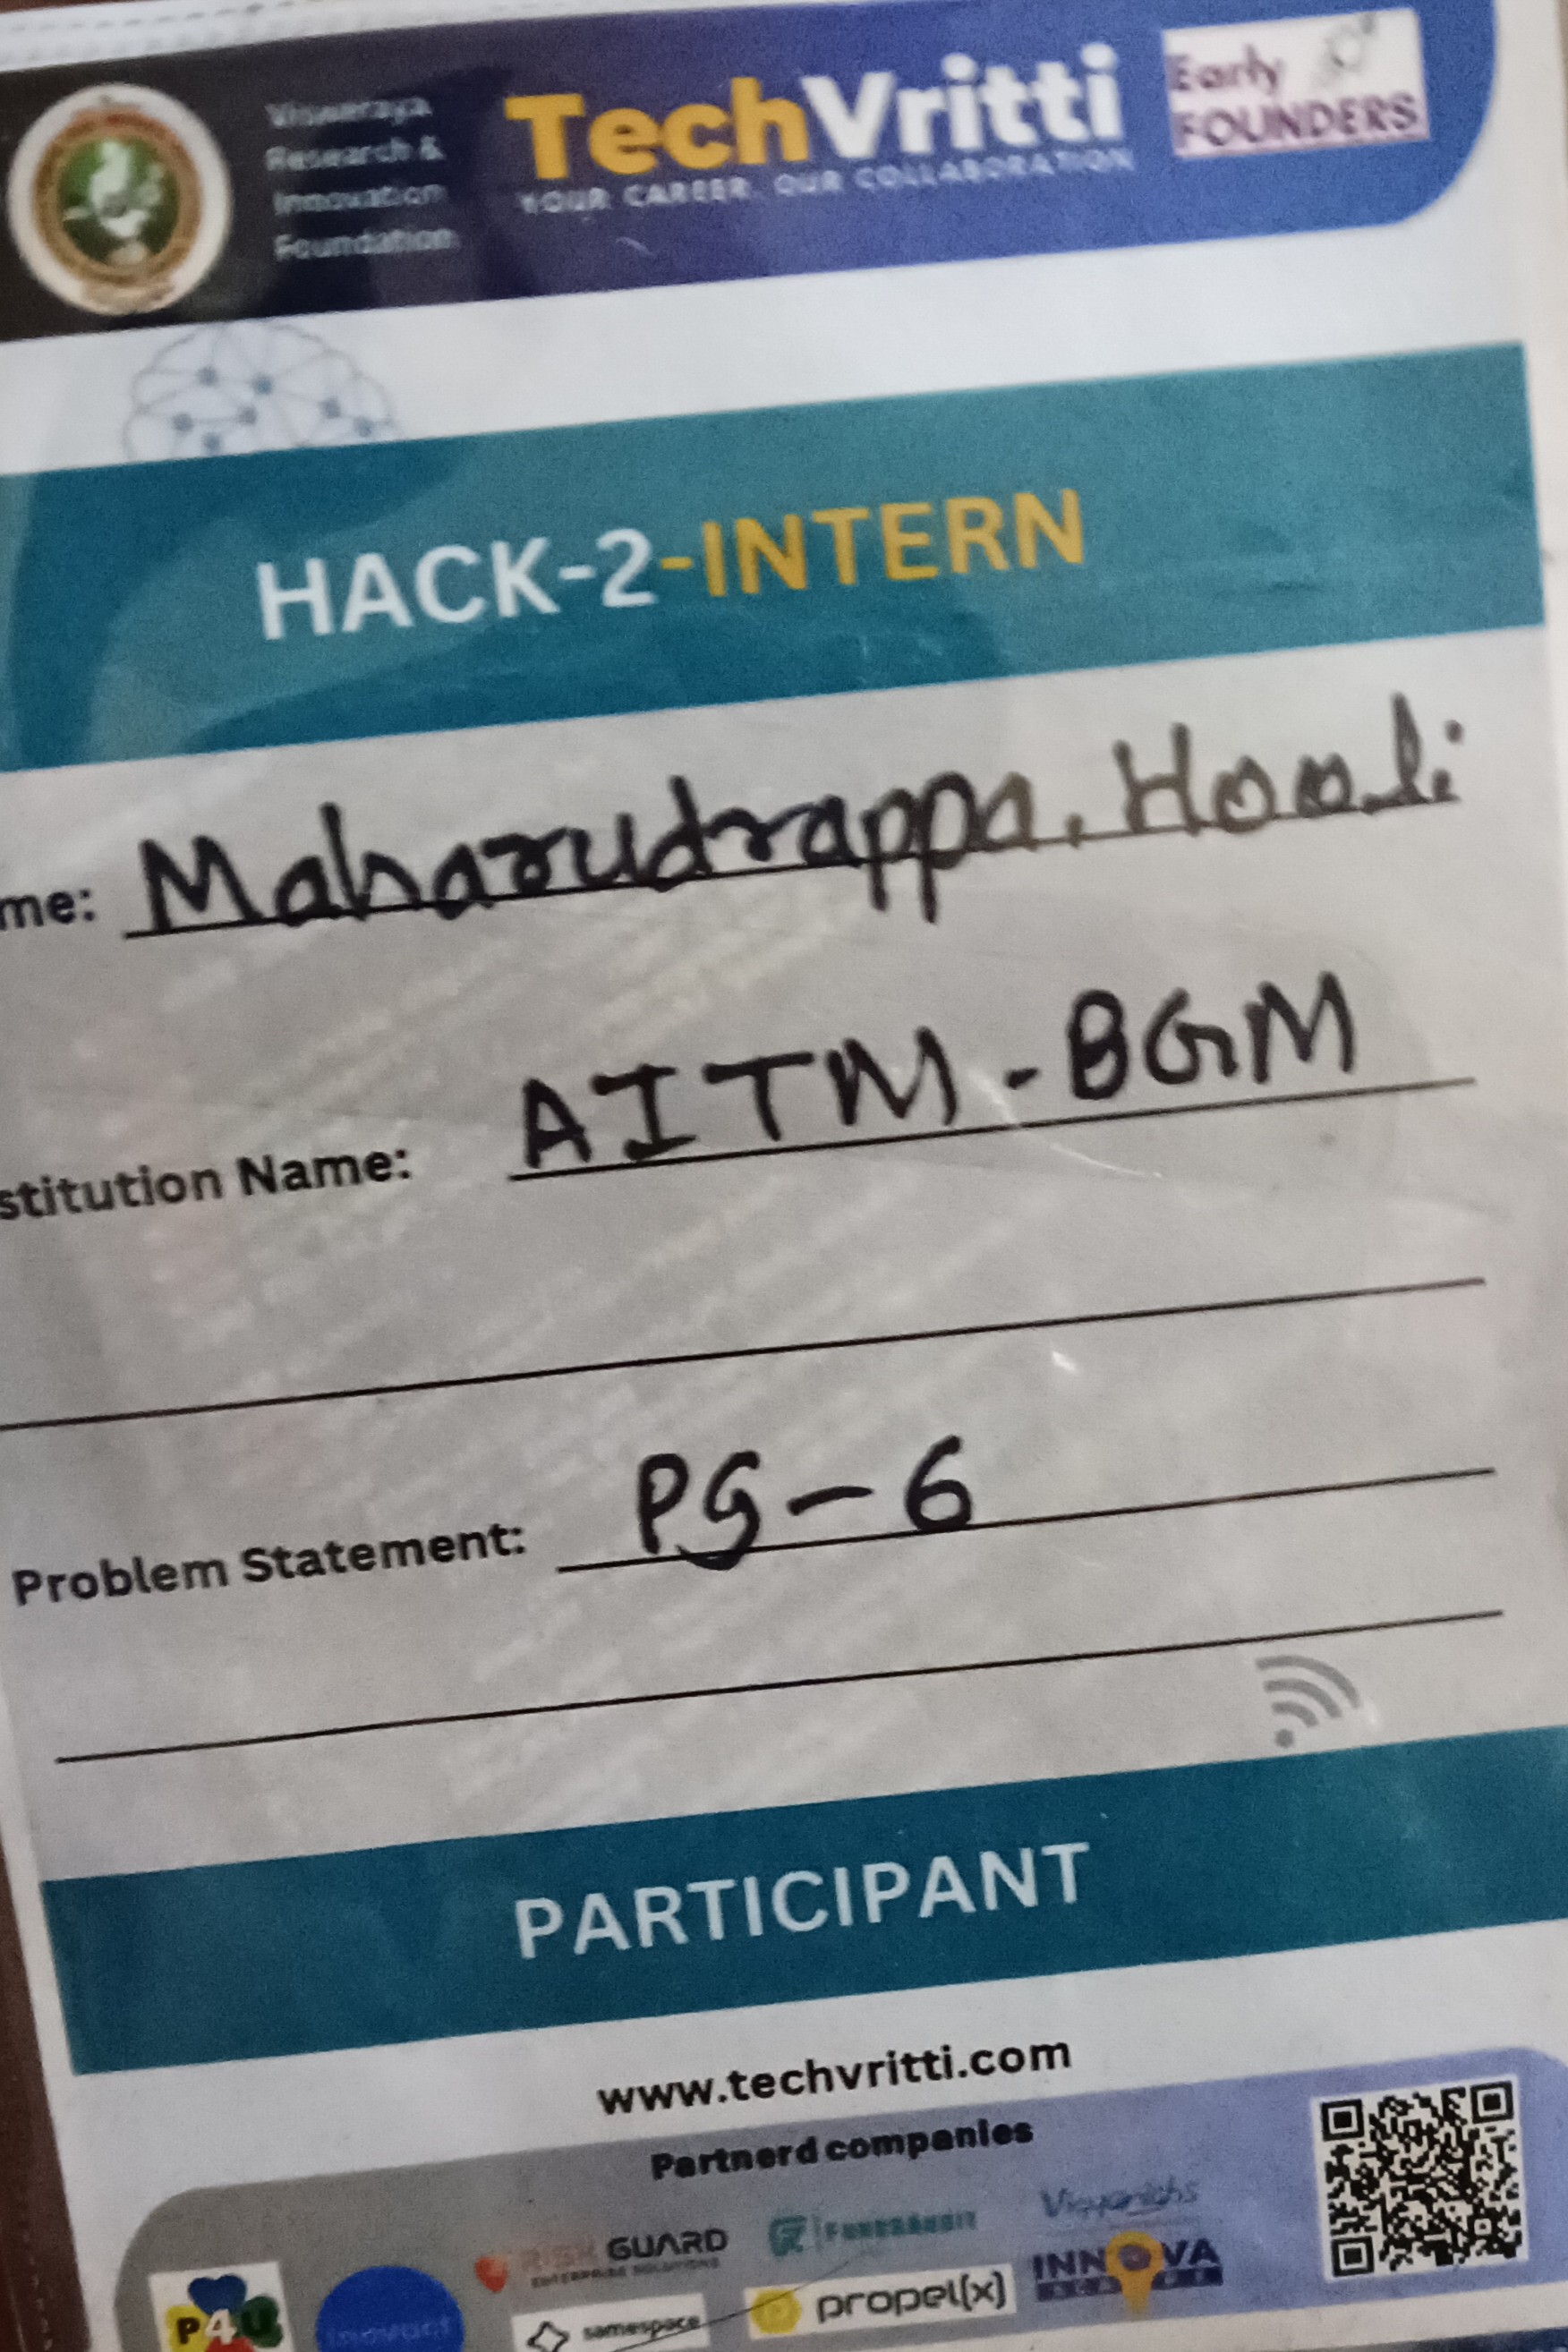 Visweraya
Research &
Innovation
Foundation
TechVritti
YOUR CAREER. OUR COLLABORATION
Early
FOUNDERS
HACK-2-INTERN
me: Maharudrappa. Hooli
stitution Name: AITM - BGM
Problem Statement: PS - 6
PARTICIPANT
www.techvritti.com
Partnerd companies
P4U
RISK GUARD
ENTERPRISE SOLUTIONS
samespace
propel(x)
INNOVA